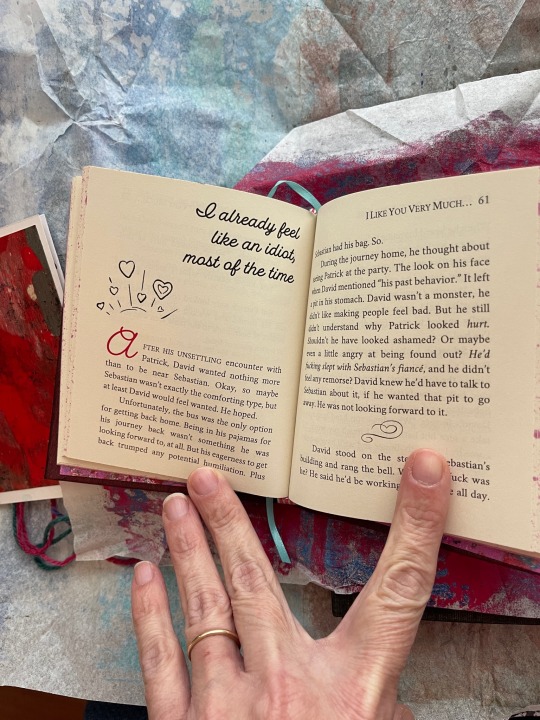 I already feel
like an idiot,
most of the time
AFTER HIS UNSETTLING encounter with
Patrick, David wanted nothing more
than to be near Sebastian. Okay, so maybe
Sebastian wasn't exactly the comforting type, but
at least David would feel wanted. He hoped.
Unfortunately, the bus was the only option
for getting back home. Being in his pajamas for
his journey back wasn't something he was
looking forward to, at all. But his eagerness to get
back trumped any potential humiliation. Plus
I LIKE YOU VERY MUCH... 61
Sebastian had his bag. So.
During the journey home, he thought about
seeing Patrick at the party. The look on his face
when David mentioned “his past behavior.” It left
a pit in his stomach. David wasn't a monster, he
didn't like making people feel bad. But he still
didn't understand why Patrick looked hurt.
Shouldn't he have looked ashamed? Or maybe
even a little angry at being found out? He'd
fucking slept with Sebastian's fiancé, and he didn't
feel any remorse? David knew he'd have to talk to
Sebastian about it, if he wanted that pit to go
away. He was not looking forward to it.
David stood on the Sebastian's
building and rang the bell. fuck was
he? He said he'd be working all day.